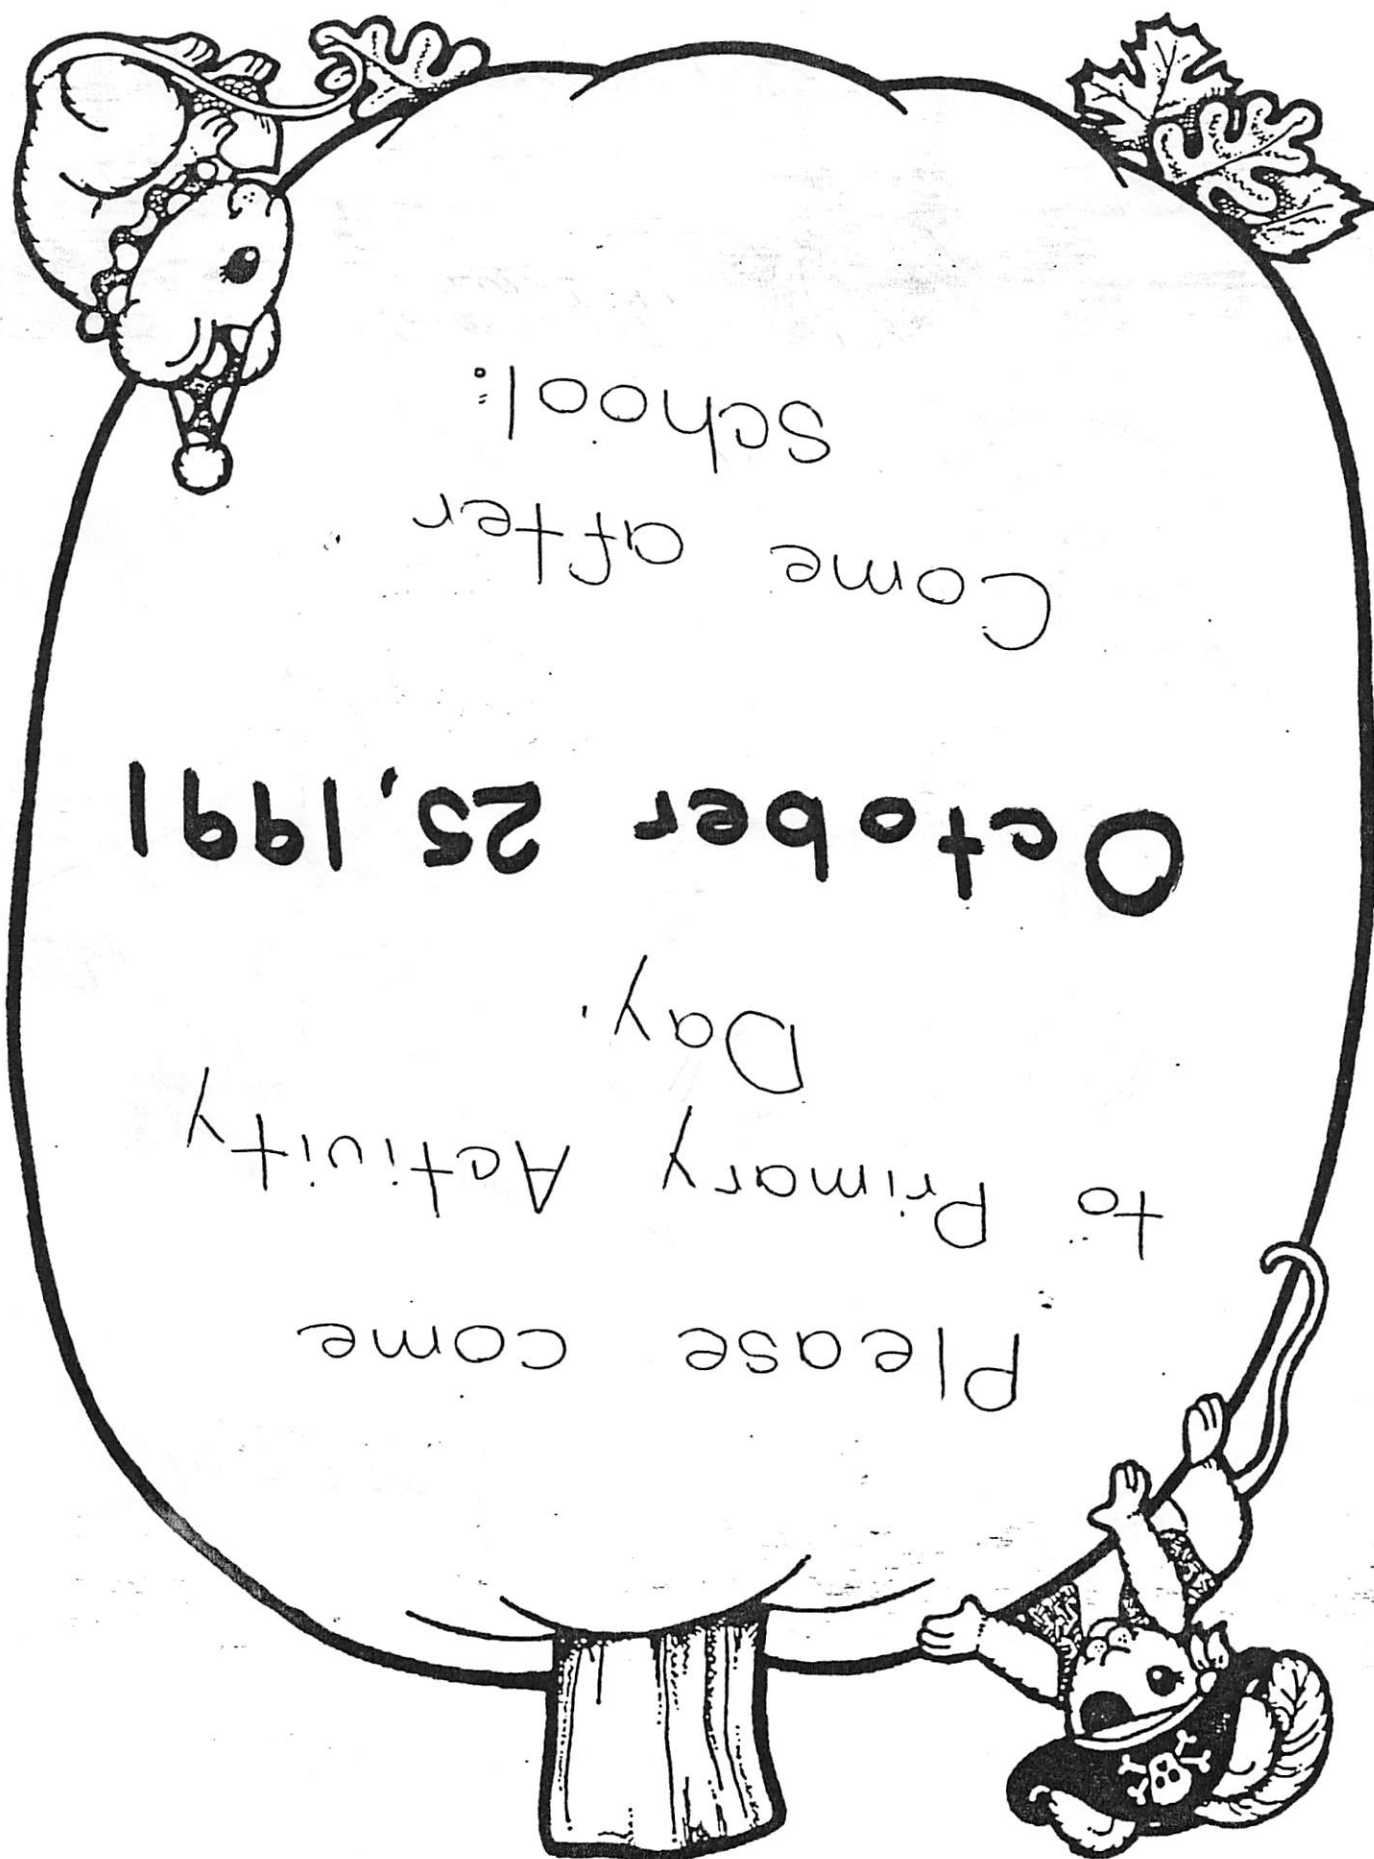 Please come
to Primary Activity
Day.
October 25, 1991
Come after
School: